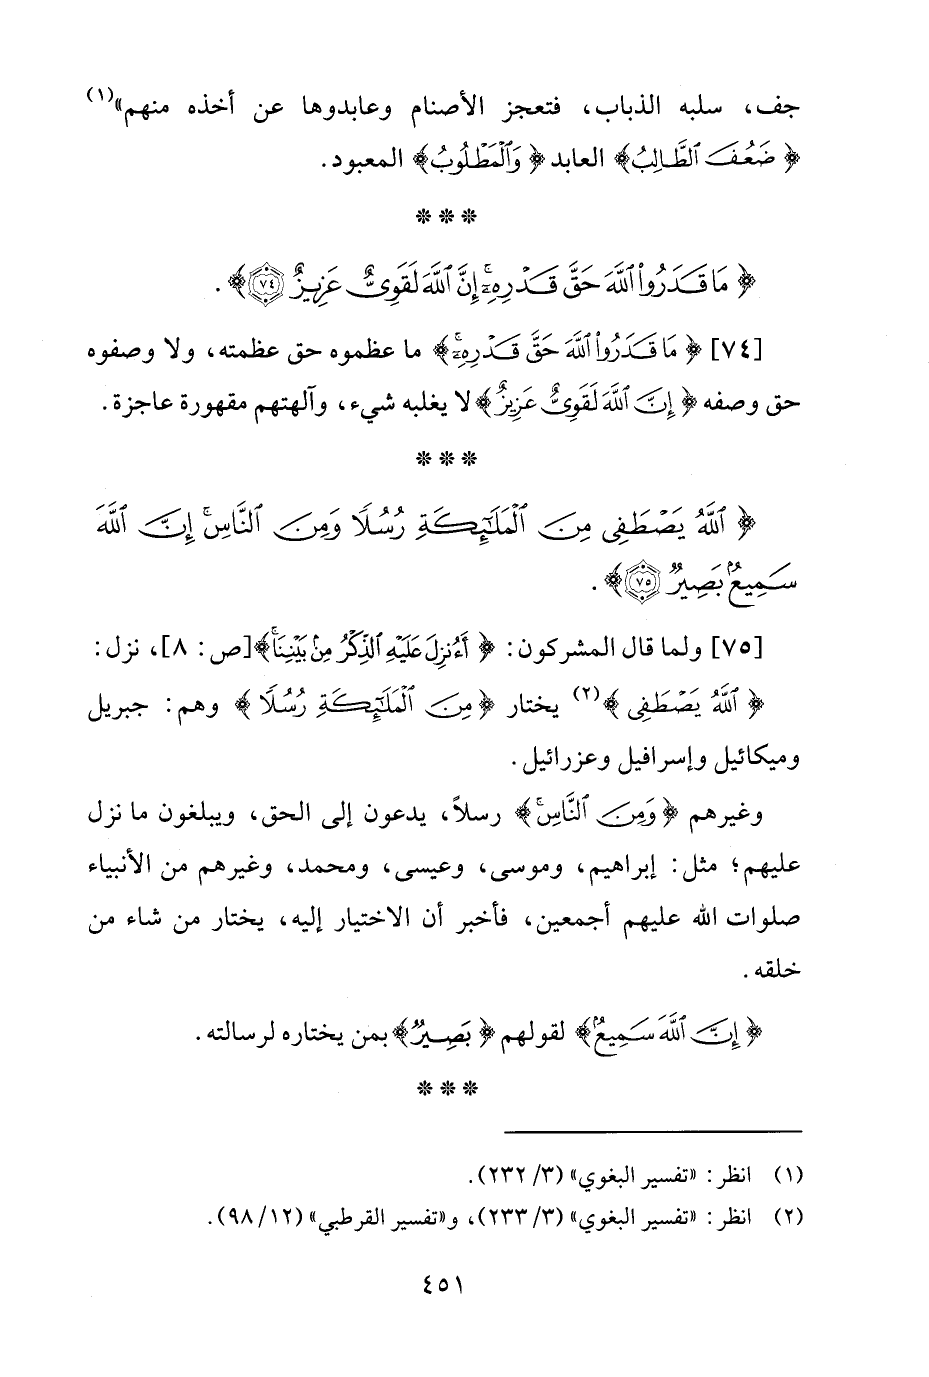 جف، سلبه الذباب، فتعجز الأصنام وعابدوها عن أخذه منهم»(١)
﴿ضَعُفَ ٱلطَّالِبُ﴾ العابد ﴿وَٱلْمَطْلُوبُ﴾ المعبود.
* * *
﴿مَا قَدَرُوا۟ ٱللَّهَ حَقَّ قَدْرِهِۦٓ ۚ إِنَّ ٱللَّهَ لَقَوِىٌّ عَزِيزٌ ﴿٧٤﴾﴾.
[٧٤] ﴿مَا قَدَرُوا۟ ٱللَّهَ حَقَّ قَدْرِهِۦٓ ۚ﴾ ما عظموه حق عظمته، ولا وصفوه
حق وصفه ﴿إِنَّ ٱللَّهَ لَقَوِىٌّ عَزِيزٌ﴾ لا يغلبه شيء، وآلهتهم مقهورة عاجزة.
* * *
﴿ٱللَّهُ يَصْطَفِى مِنَ ٱلْمَلَٰٓئِكَةِ رُسُلًا وَمِنَ ٱلنَّاسِ ۚ إِنَّ ٱللَّهَ
سَمِيعٌۢ بَصِيرٌ ﴿٧٥﴾﴾.
[٧٥] ولما قال المشركون: ﴿أَءُنزِلَ عَلَيْهِ ٱلذِّكْرُ مِنۢ بَيْنِنَا ۚ﴾ [ص: ٨]، نزل:
﴿ٱللَّهُ يَصْطَفِى﴾(٢) يختار ﴿مِنَ ٱلْمَلَٰٓئِكَةِ رُسُلًا﴾ وهم: جبريل
وميكائيل وإسرافيل وعزرائيل.
وغيرهم ﴿وَمِنَ ٱلنَّاسِ ۚ﴾ رسلاً، يدعون إلى الحق، ويبلغون ما نزل
عليهم؛ مثل: إبراهيم، وموسى، وعيسى، ومحمد، وغيرهم من الأنبياء
صلوات الله عليهم أجمعين، فأخبر أن الاختيار إليه، يختار من شاء من
خلقه.
﴿إِنَّ ٱللَّهَ سَمِيعٌۢ﴾ لقولهم ﴿بَصِيرٌ﴾ بمن يختاره لرسالته.
* * *
(١) انظر: «تفسير البغوي» (٣/ ٢٣٢).
(٢) انظر: «تفسير البغوي» (٣/ ٢٣٣)، و«تفسير القرطبي» (١٢/ ٩٨).
٤٥١